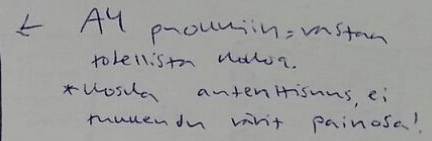 ← A4 printtiin = vastaa
todellista kokoa.
*koska autenttisuus, ei
muutendu värit painosa!